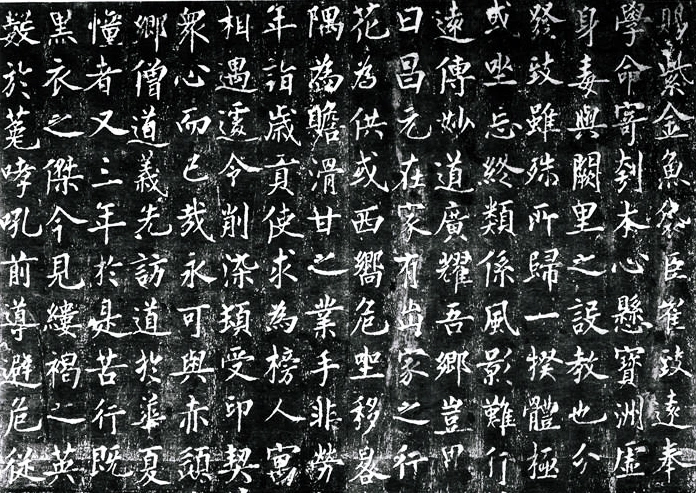 賜紫金魚袋臣崔致遠奉
學命寄刳木心懸寶洲虛
身毒與闕里之設教也分
發致雖殊所歸一揆體極
或坐忘終類係風影難行
遠傳妙道廣耀吾鄉豈用
曰昌元在家有出家之行
花為供或西嚮危坐移晷
隅為贍滑甘之業手非勞
年詣歲貢使求為榜人寓
相遇遽令削染頓受印契
衆心而已哉永可與赤頭
鄉僧道義先訪道於華夏
憧者又三年於是苦行既
黑衣之傑今見縷褐之英
數於菟哮吼前導避危從